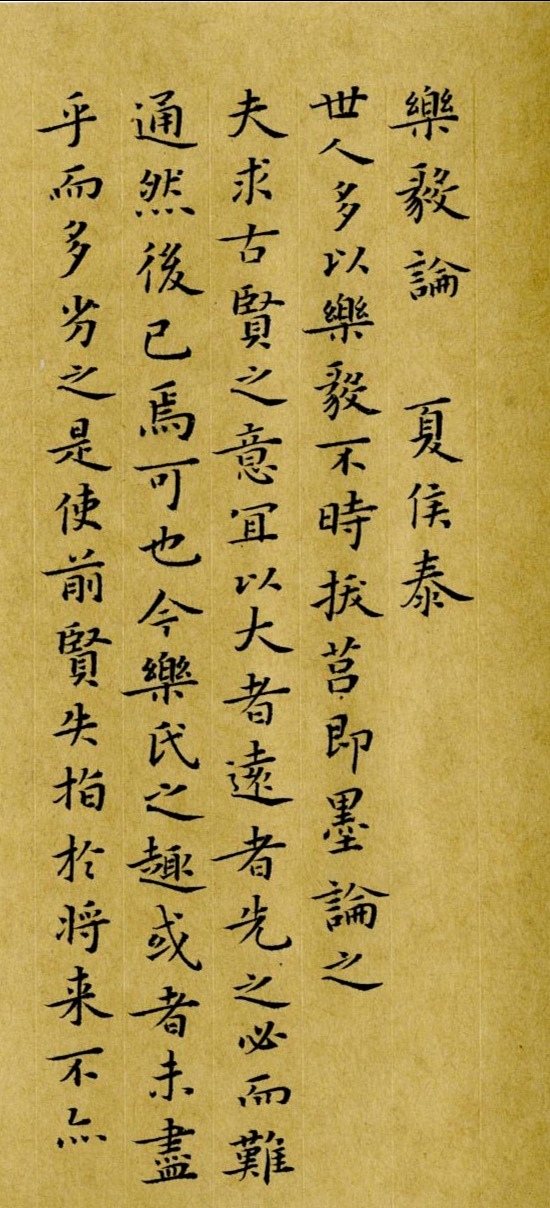 樂毅論 夏侯泰
世人多以樂毅不時拔莒即墨論之
夫求古賢之意宜以大者遠者先之必而難
通然後已焉可也今樂氏之趣或者未盡
乎而多劣之是使前賢失指於将来不亦